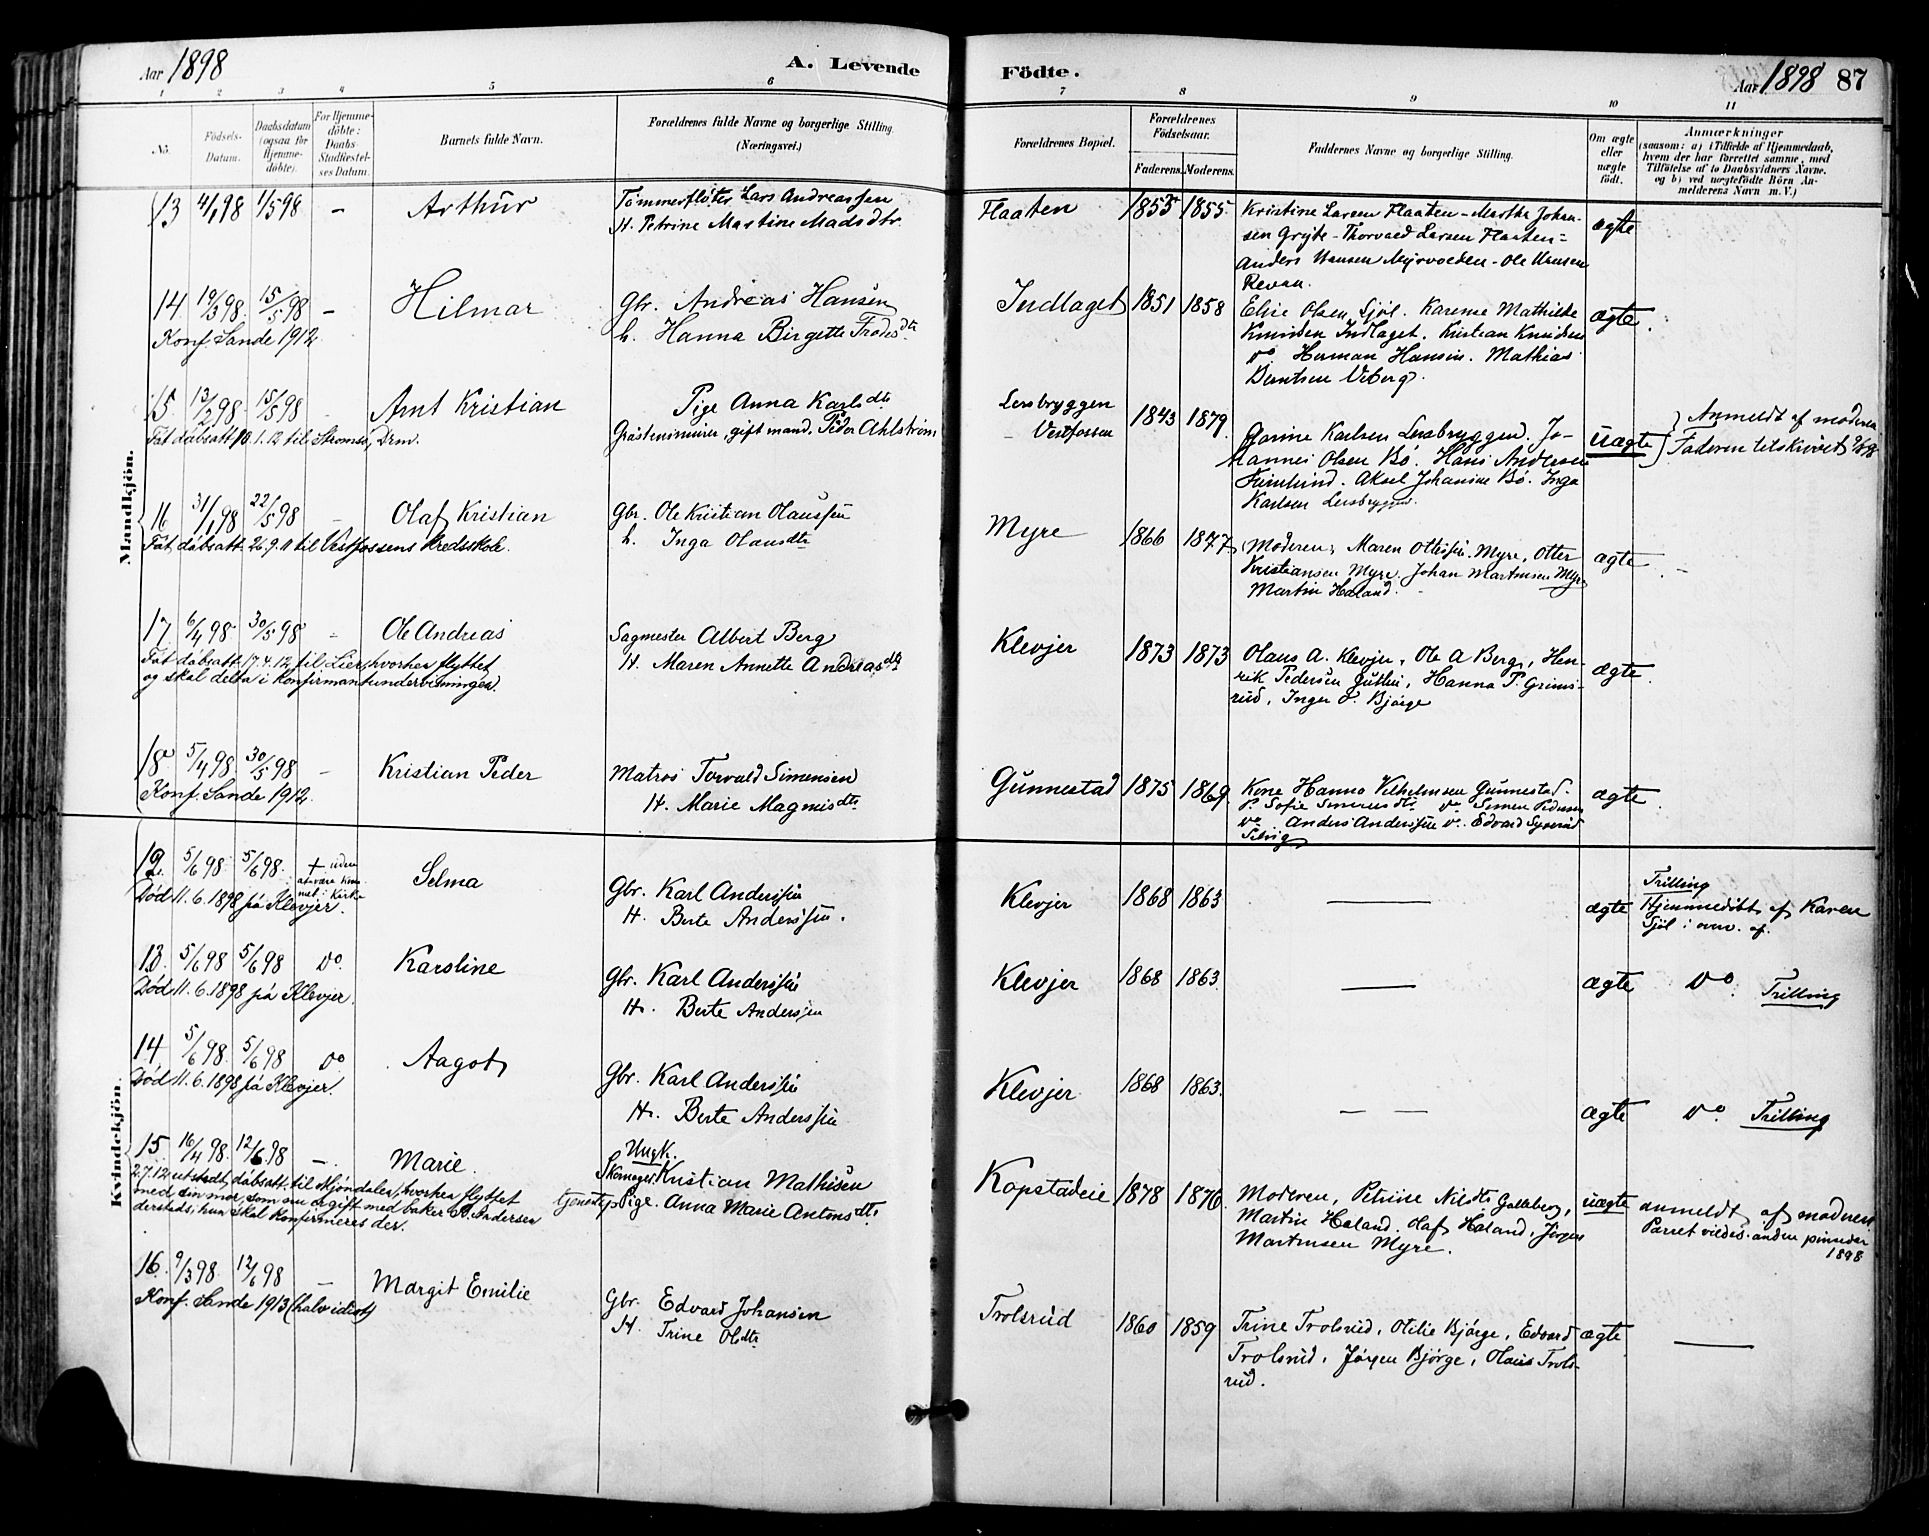 Aar 1898
A. Levende
Fødte.
Aar 1898 87
1 2 3 4 5 6 7 8 9 10 11
No.
Fødsels-Datum.
Daabsdatum (ogsaa for Hjemmedøbte).
For Hjemmedøbte: Daabs-Stadfæstelses Datum.
Barnets fulde Navn.
Forældrenes fulde Navne og borgerlige Stilling.
(Næringsvei.)
Forældrenes Bopæl.
Forældrenes Fødselsaar.
Faderens. Moderens.
Faddernes Navne og borgerlige Stilling.
Om ægte eller uægte født.
Anmærkninger
(saasom: a) i Tilfælde af Hjemmedaab,
hvem der har forrettet samme, med
Tilføielse af to Daabsvidners Navne.
og b) ved uægtefødte Børn An-
melderens Navn m. V.)
Mandkjøn.
13 4/1 98 1/5 98 – Arthur
Tømmerfløter Lars Andreassen
H. Petrine Mastine Madsdtr.
Flaaten 1855 1855
Kristine Larsen Flaaten – Marthe Johan-
sen Gryte – Thorvald Larsen Flaaten =
Anders Hansen Myrvolden – Ole Hansen
Revaa.
ægte
14 19/3 98. 15/5 98 – Hilmar
Gbr. Andreas Hansen
h. Hanna Birgette Frodesdtr.
Konf. Sande 1912.
Indlaget 1851 1858
Elise Olsen Sjøl. Karense Mathilde
Knudsen Indlaget. Kristian Knudsen
do Herman Hansen. Mathias
Berntsen Viberg.
ægte.
15. 13/2 98. 15/5 98 Arnt Kristian
Pige Anna Karlsdtr
Gråstensminerer, gift mand. Peder Ahlstrøm
Fåt dåbsatt. 10.1.12 til Strømsø, Drm.
Lersbryggen
– Vestfossen
1843 1879.
Karlsen Lersbryggen. Jo-
hannes Olsen Bø. Hans Andersen
Aksel Johansen Bø. Inga
Karlsen Lersbryggen.
uægte
Anmeldt af moderen
Faderen tilskrevet
16 31/1 98 22/5 98 – Olaf Kristian
Gbr. Ole Kristian Olaussen
h. Inga Olausdtr
Fåt dåbsatt. 26.9.11 til Vestfossens kredsskole.
Myre 1866 1877
Moderen, Maren Ottersen Myre, Otter
Kristiansen Myre. Johan Martinsen Myre
Martin Haland.
ægte –
17 6/4 98. 30/5 98 – Ole Andreas
Sagmester Albert Berg
H. Maren Annette Andreasdtr
Fåt dåbsatt. 17.4.12 til Lier, hvorhen flyttet
og skal delta i konfirmantundervisningen.
Klevjer 1873 1873
Olaus A. Klevjer, Ole A Berg, Hen-
rik Pedersen Guthu, Hanna P. Grims-
rud, Inger O. Bjørge
ægte.
18 5/4 98. 30/5 98 – Kristian Peder
Matros Torvald Simensen
H. Marie Magnusdtr
Konf. Sande 1912.
Gunnestad 1875 1869
Kone Hanna Vilhelmsen Gunnestad.
P. Sofie Simensdtr do Simen Pedersen
do Anders Anderssen do. Edvard
Selvig
ægte.
Kvindekjøn.
12. 5/6 98. 5/6 98. + uden
at være kom-
met i kirke
Selma
Gbr. Karl Anderssen
H. Berte Anderssen.
Død 11.6.1898 på Klevjer.
Klevjer 1868 1863 —
ægte
Trilling
Hjemmedøbt af Karen
Sjøl i overv. af.
13. 5/6 98 5/6 98 do. Karoline
Gbr. Karl Anderssen
H. Berte Anderssen
Død 11.6.1898 på Klevjer.
Klevjer 1868 1863. —
ægte do. Trilling
14 5/6 98. 5/6 98 do Aagot
Gbr. Karl Anderssen
H. Berte Anderssen
Død 11.6.1898 på Klevjer.
Klevjer 1868 1863. — —
ægte do. Trilling
15. 16/4 98. 12/6 98 – Marie.
Ungk.
Skomager Kristian Mathisen
tjenestepige. Anna Marie Antonsdtr
2.7.12 utstedt dåbsatt. til Mjøndalen, hvorhen flyttet
med sin mor, som nu er gift med baker A. Andersen
dersteds; hun skal konfirmeres der.
Kopstadeie 1878 1876.
Moderen, Petrine Nilsdtr Galleberg,
Martin Haland. Olaf Haland. Jørgen
Martinsen Myre.
uægte
anmeldt af moderen
Parret viedes anden pinsedag
1898
16. 9/3 98. 12/6 98 – Margit Emilie
Gbr. Edvard Johansen
H. Trine Olsdtr
Konf. Sande 1913 (halv idiot)
Trolsrud 1860 1859
Trine Trolsrud, Otilie Bjørge, Edvard
Trolsrud, Jørgen Bjørge, Olaus Trols-
rud.
ægte —